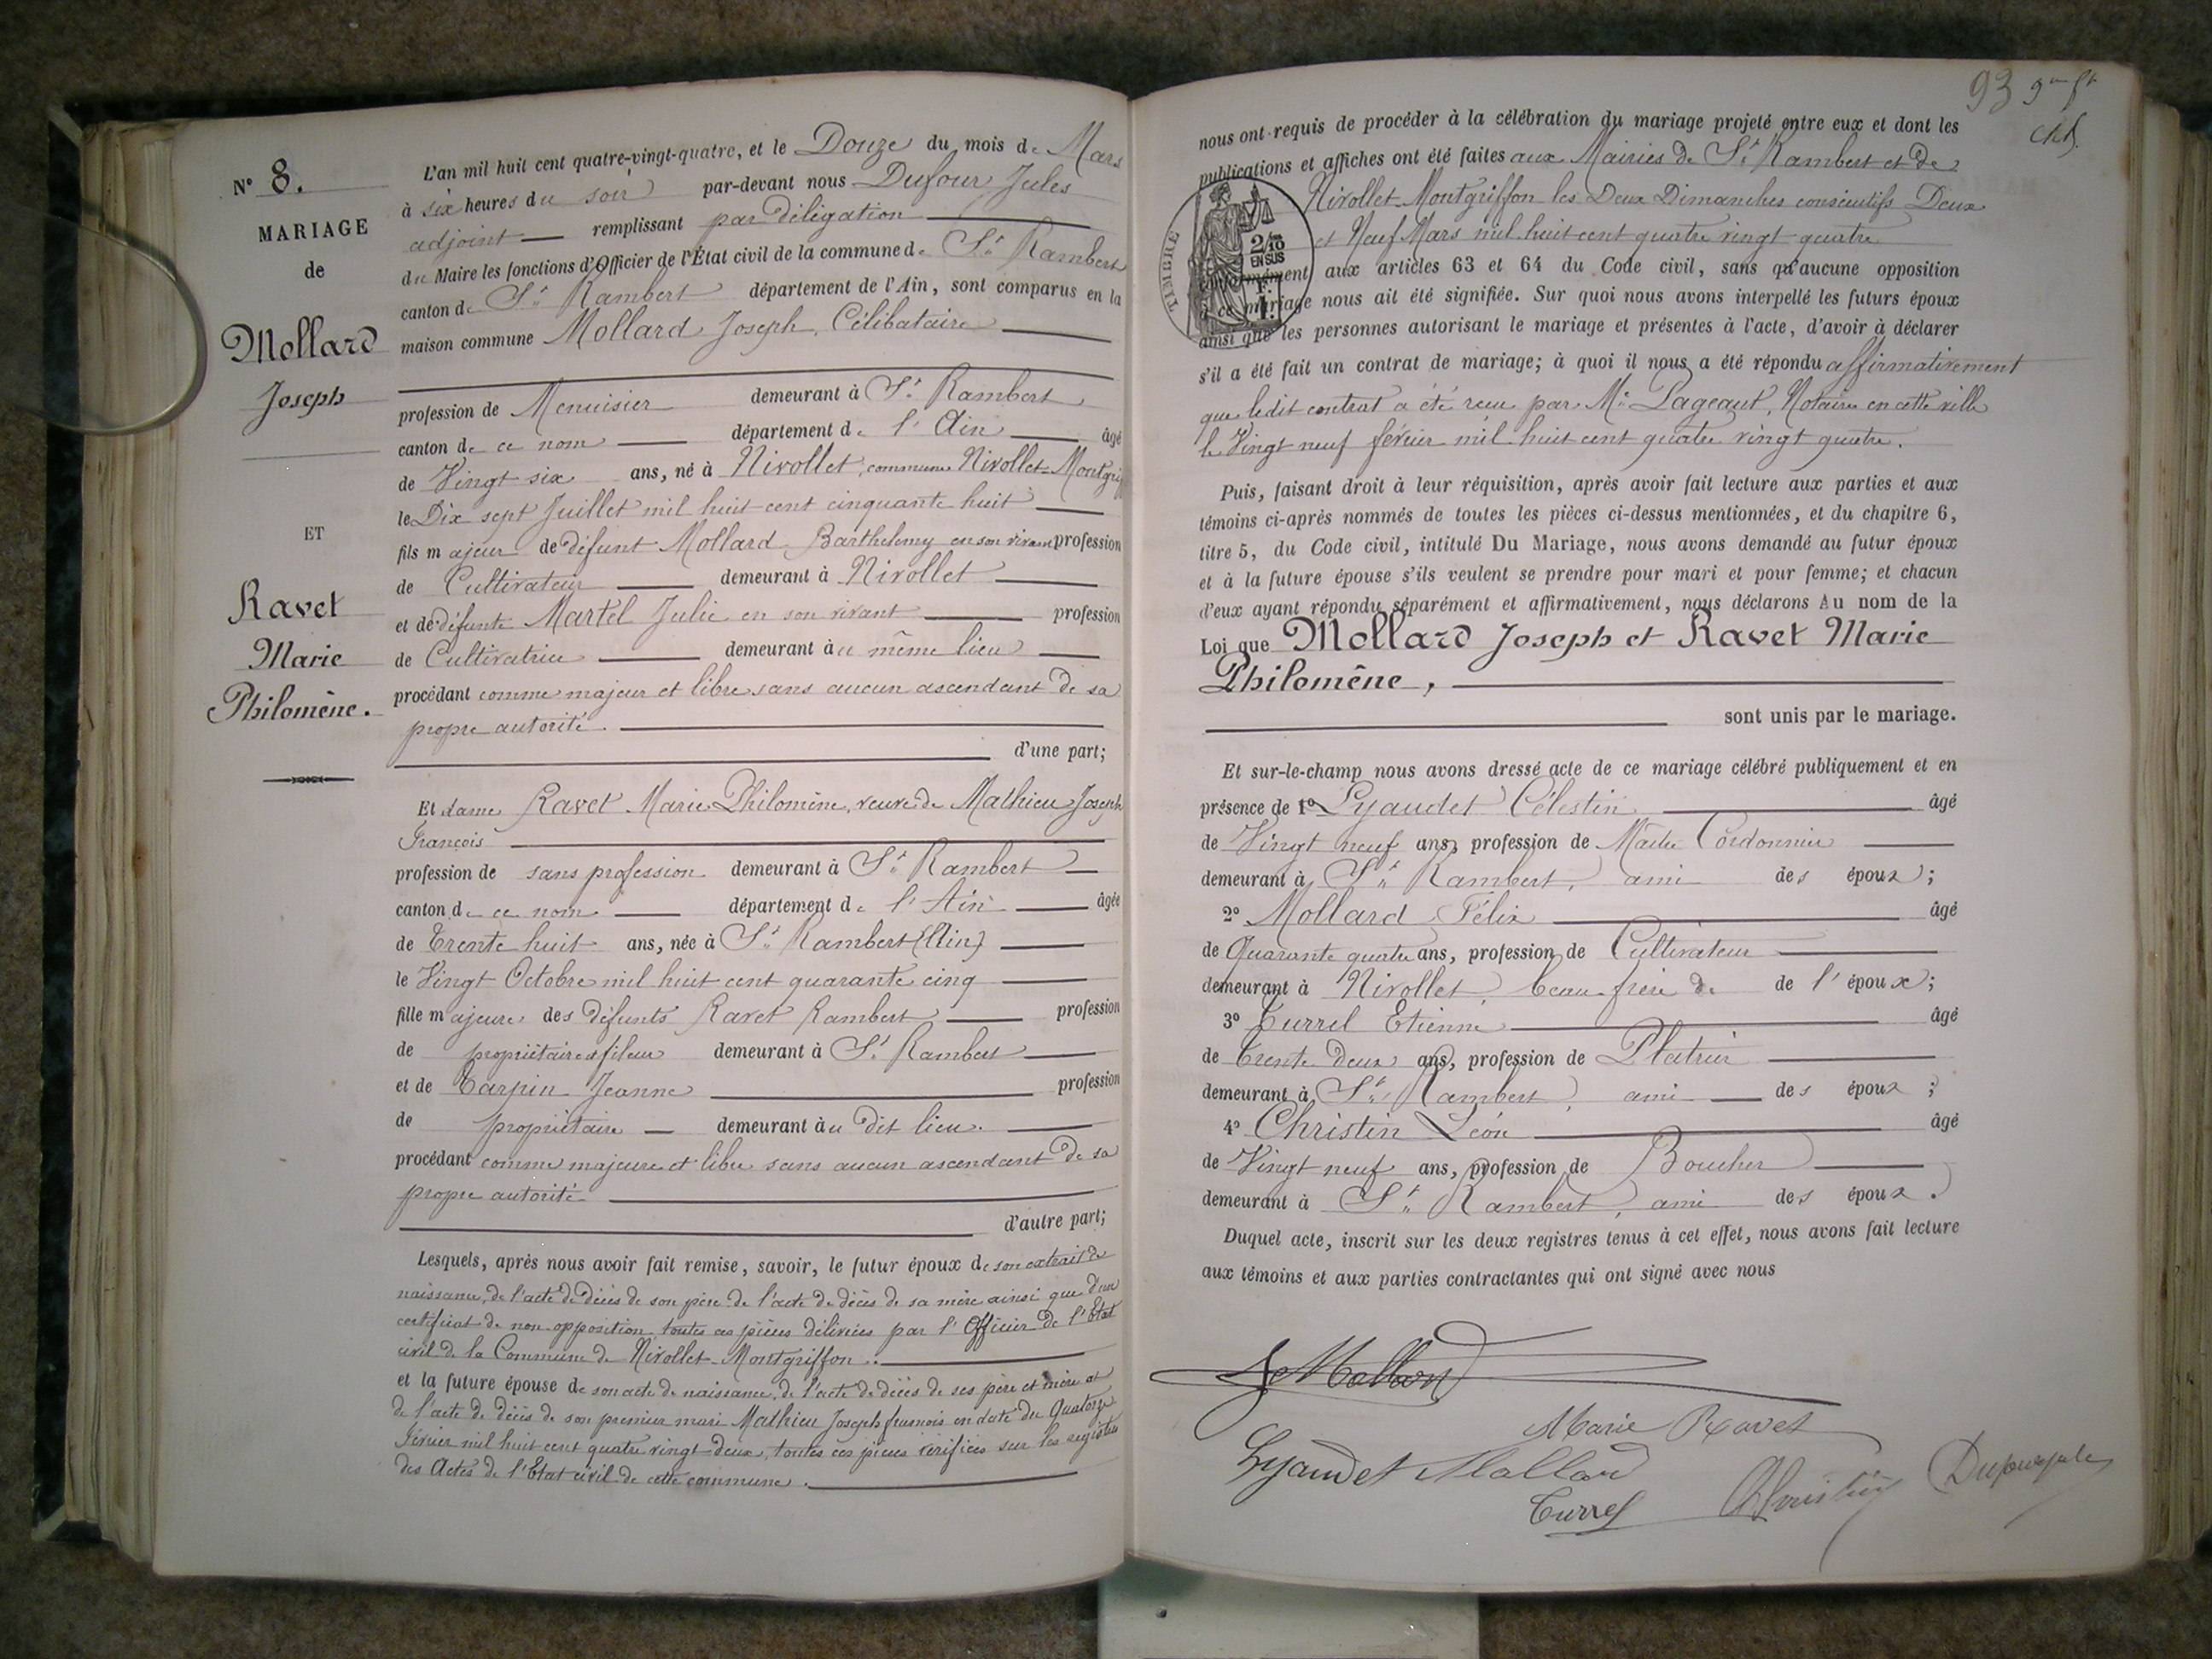 N° 8.
MARIAGE
de
Mollard
Joseph
ET
Ravet
Marie
Philomène.
L'an mil huit cent quatre-vingt-quatre, et le Douze du mois de Mars
à six heures du soir par-devant nous Dufour Jules
adjoint remplissant par délégation
du Maire les fonctions d'Officier de l'État civil de la commune de St Rambert
canton de St Rambert département de l'Ain, sont comparus en la
maison commune Mollard Joseph, Célibataire
profession de Menuisier demeurant à St Rambert
canton de ce nom département de l'Ain âgé
de Vingt six ans, né à Nivollet, commune Nivollet-Montgrif
le Dix sept Juillet mil huit cent cinquante huit
fils majeur de défunt Mollard Barthelemy en son vivant profession
de Cultivateur demeurant à Nivollet
et de défunte Martel Julie en son vivant profession
de Cultivatrice demeurant au même lieu
procédant comme majeur et libre sans aucun ascendant de sa
propre autorité.
d'une part;
Et dame Ravet Marie Philomène, veuve de Mathieu Joseph
François
profession de sans profession demeurant à St Rambert
canton de ce nom département de l'Ain âgée
de Trente huit ans, née à St Rambert (Ain)
le Vingt Octobre mil huit cent quarante cinq
fille majeure des défunts Ravet Rambert profession
de propriétaire et fileur demeurant à St Rambert
et de Tarpin Jeanne profession
de propriétaire demeurant au dit lieu.
procédant comme majeure et libre sans aucun ascendant de sa
propre autorité
d'autre part;
Lesquels, après nous avoir fait remise, savoir, le futur époux de son extrait de
naissance, de l'acte de décès de son père de l'acte de décès de sa mère ainsi que d'un
certificat de non opposition, toutes ces pièces délivrées par l'Officier de l'État
civil de la Commune de Nivollet-Montgriffon.
et la future épouse de son acte de naissance, de l'acte de décès de ses père et mère et
de l'acte de décès de son premier mari Mathieu Joseph françois en date du Quatorze
Février mil huit cent quatre vingt deux, toutes ces pièces vérifiées sur les registres
des Actes de l'Etat civil de cette commune.
93
nous ont requis de procéder à la célébration du mariage projeté entre eux et dont les
publications et affiches ont été faites aux Mairies de St Rambert et de
Nivollet-Montgriffon les Deux Dimanches consécutifs Deux
et Neuf Mars mil huit cent quatre vingt-quatre
conformément aux articles 63 et 64 du Code civil, sans qu'aucune opposition
à ce mariage nous ait été signifiée. Sur quoi nous avons interpellé les futurs époux
ainsi que les personnes autorisant le mariage et présentes à l'acte, d'avoir à déclarer
s'il a été fait un contrat de mariage; à quoi il nous a été répondu affirmativement
que ledit contrat a été reçu par Me Pageaut, Notaire en cette ville
le Vingt neuf février mil huit cent quatre vingt quatre.
TIMBRE
2/10
EN SUS
1F
Puis, faisant droit à leur réquisition, après avoir fait lecture aux parties et aux
témoins ci-après nommés de toutes les pièces ci-dessus mentionnées, et du chapitre 6,
titre 5, du Code civil, intitulé Du Mariage, nous avons demandé au futur époux
et à la future épouse s'ils veulent se prendre pour mari et pour femme; et chacun
d'eux ayant répondu séparément et affirmativement, nous déclarons Au nom de la
Loi que Mollard Joseph et Ravet Marie
Philomène,
sont unis par le mariage.
Et sur-le-champ nous avons dressé acte de ce mariage célébré publiquement et en
présence de 1° Lyaudet Célestin âgé
de Vingt neuf ans, profession de Maître Cordonnier
demeurant à St Rambert, ami des époux;
2° Mollard Félix âgé
de Quarante quatre ans, profession de Cultivateur
demeurant à Nivollet, beau-frère de de l'époux;
3° Turrel Etienne âgé
de Trente Deux ans, profession de Platrier
demeurant à St Rambert, ami des époux;
4° Christin Léon âgé
de Vingt neuf ans, profession de Boucher
demeurant à St Rambert, ami des époux.
Duquel acte, inscrit sur les deux registres tenus à cet effet, nous avons fait lecture
aux témoins et aux parties contractantes qui ont signé avec nous
Mollard
Marie Ravet
Lyaudet Mollard
Turrel Christin Dufour Jules